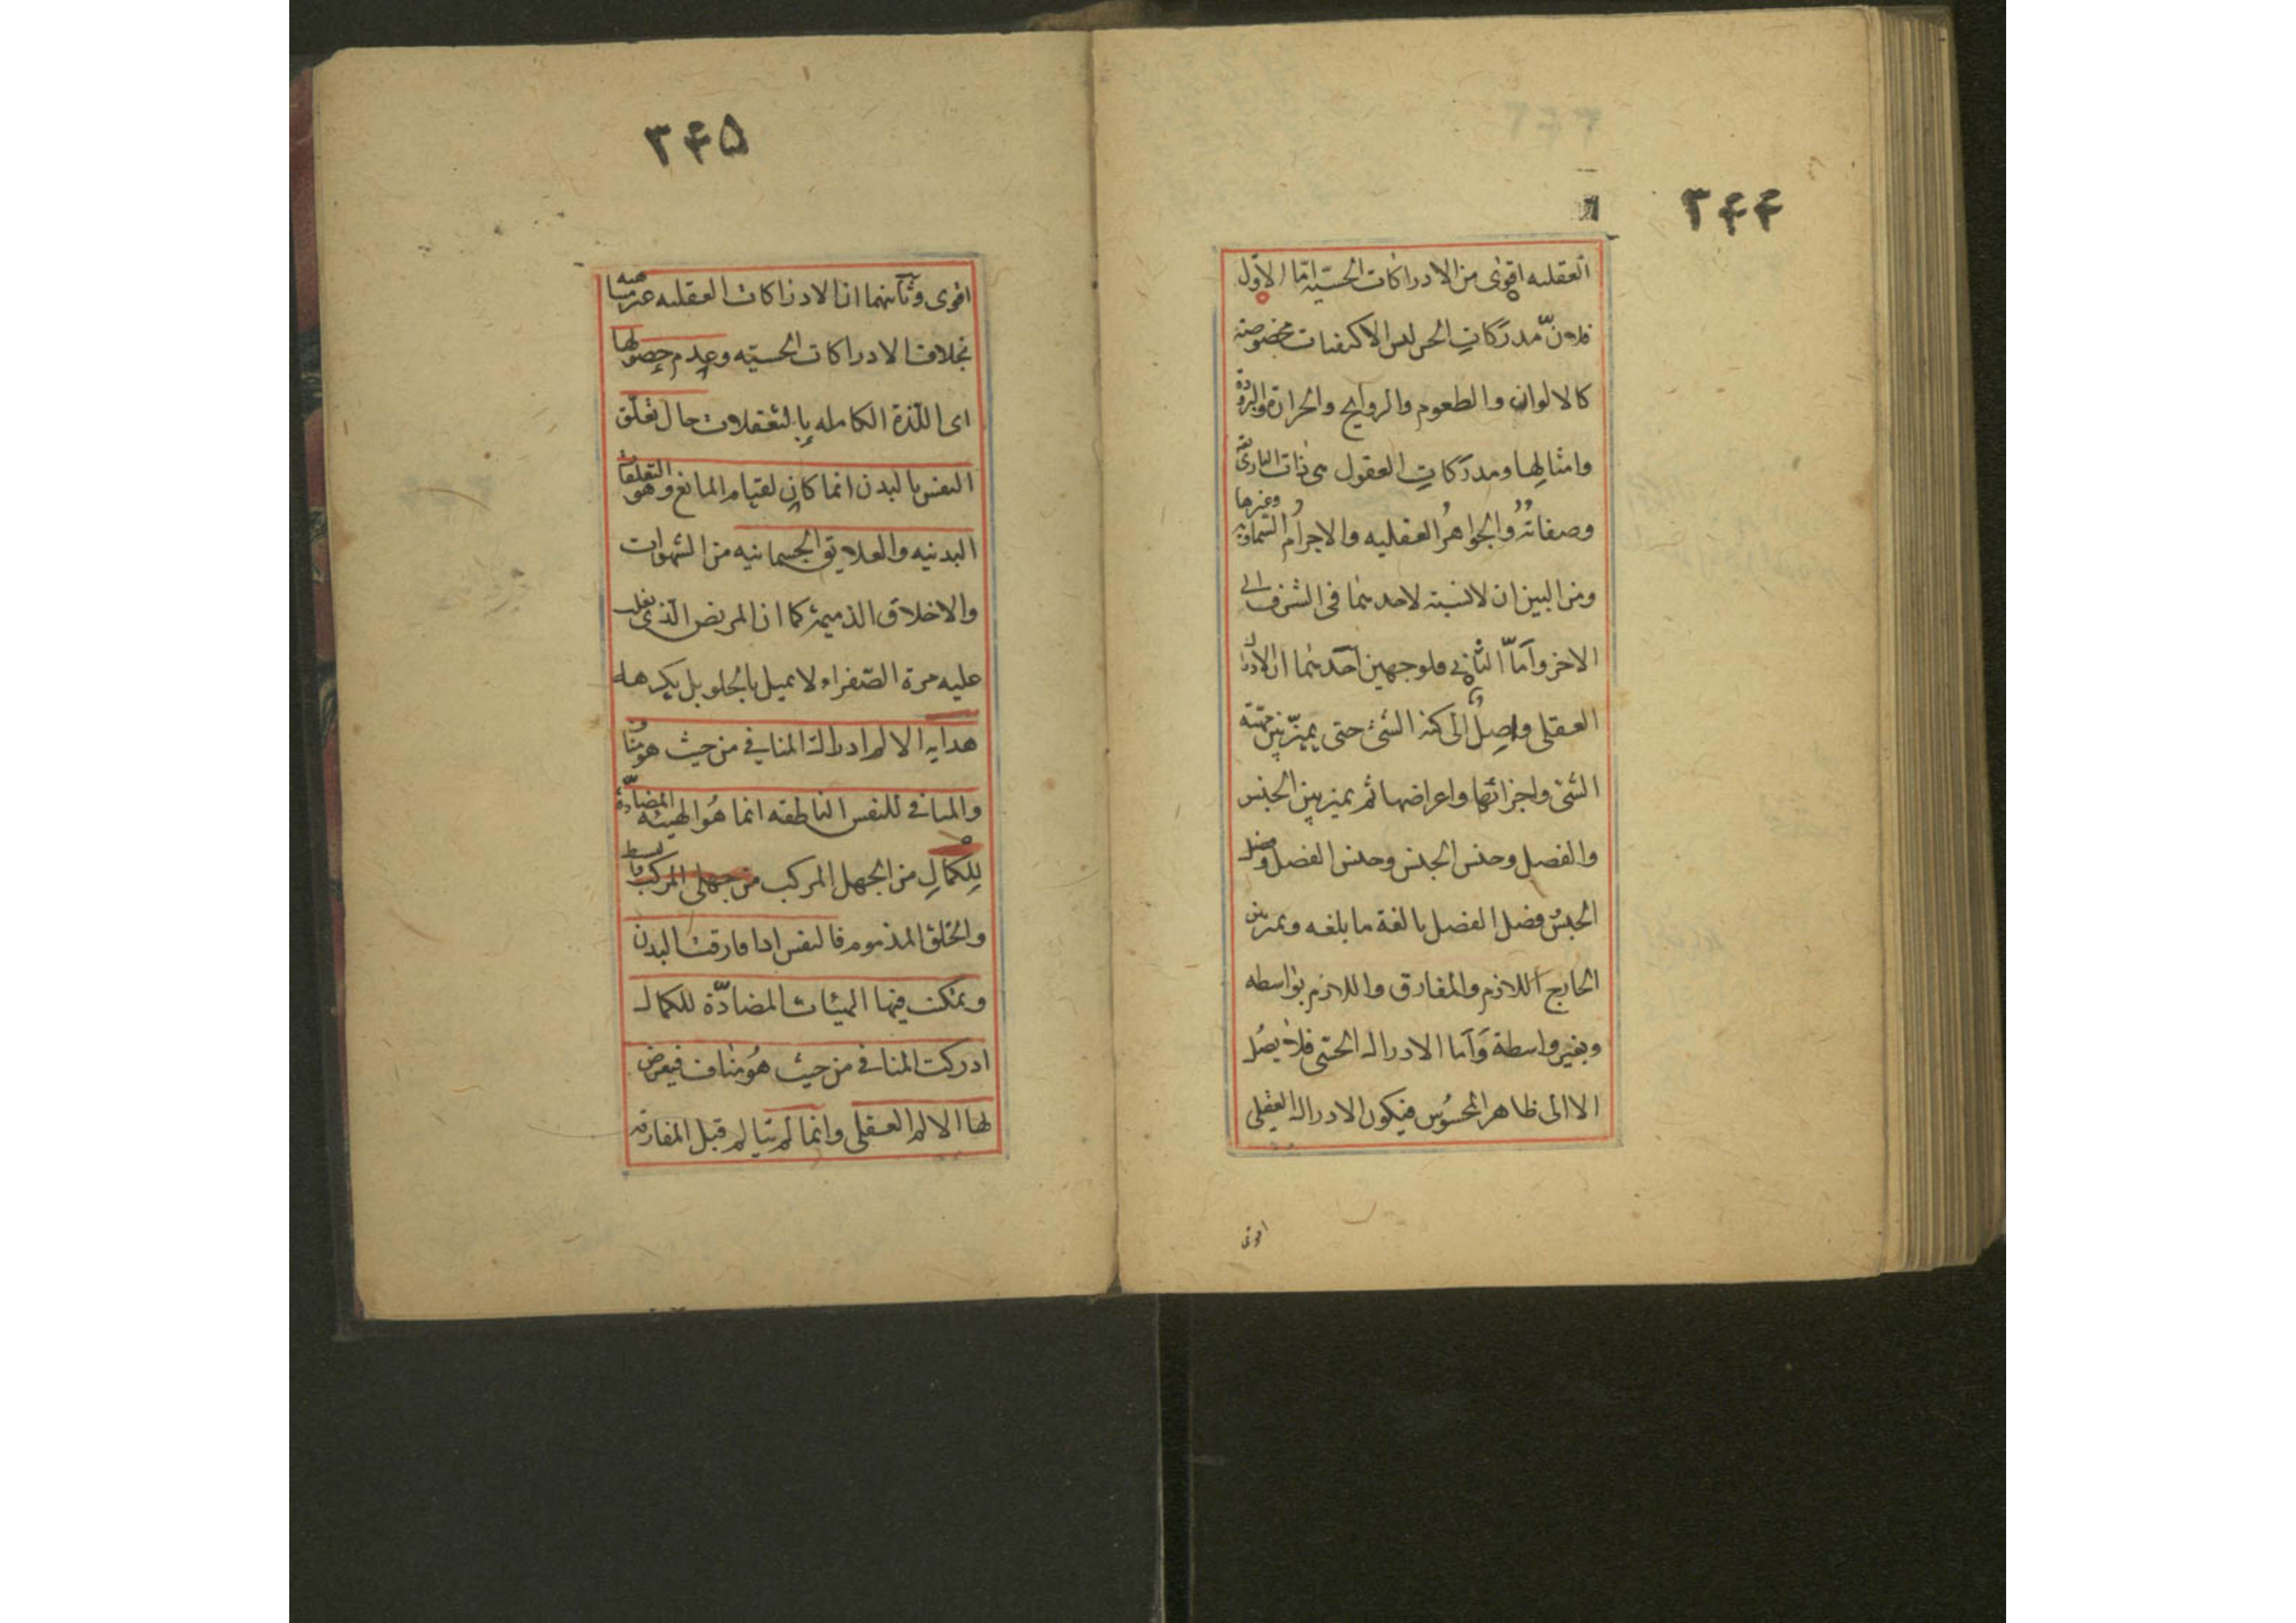 ۳۴۴
العقليه اقوى من الادراكات الحسيّة امّا الاوّل
فلانّ مدرَكاتِ الحس ليس الا كيفيات مخصوصة
كالالوان والطعوم والروايح والحرارة والبرودة
وامثالِها ومدرَكاتِ العقول هى ذات البارى تع
وصفاتُه والجواهرُ العقليه والاجرامُ السماوية وغيرها
ومن البين ان لا نسبة لاحدهما فى الشرف الى
الاخر وامّا الثانى فلوجهين احدهما ان الادراك
العقلى واصِلٌ الى كنه الشئ حتى يميّز بين مهيّة
الشئ واجزائها واعراضها ثم يميز بين الجنس
والفصل وجنس الجنس وجنس الفصل وفصل
الجنس وفصل الفصل بالغة ما بلغه ويميز بين
الخارج اللازم والمفارق واللازم بواسطه
وبغير واسطة وَاَما الادراك الحسّى فلا يصُل
الا الى ظاهر المحسُوس فيكون الادراك العقلى
اقوى
۳۴۵
اقوى وثانيهما ان الادراكات العقليه غير متناهيه
بخلاف الادراكات الحسيّه وعدم حصولها
اى اللّذة الكامله بالتعقلات حال تعلّق
النفس بالبدن انما كان لقيام المانع وهو التعلقات
البدنيه والعلايق الجسمانيه من الشهوات
والاخلاق الذميمة كما ان المريض الّذى يغلب
عليه مرة الصّفراء لا يميل بالحلو بل يكرهه
هدايه الالم ادراك المنافى من حيث هو مناف
والمنافى للنفس الناطقه انما هُو الهيئه المضادّة
لِلكمالِ من الجهل المركب من جهلى المركب
والخلق المذموم فالنفس اذا فارقت البدن
وتمكنت فيها الهيئات المضادّة للكمال
ادركت المنافى من حيث هُو مناف فيعرض
لها الالم العقلى وانما لم يتالم قبل المفارقه